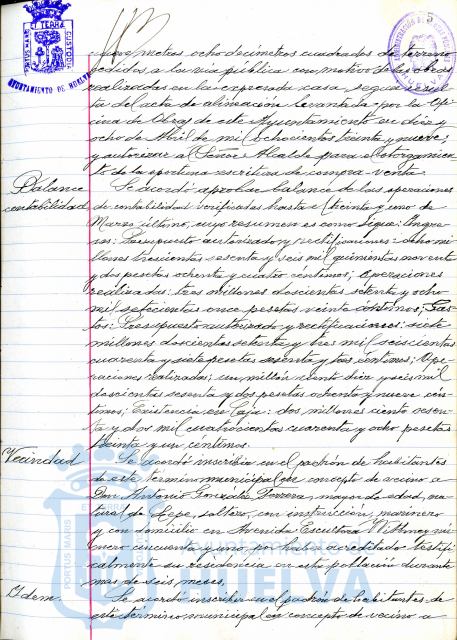 PORTUS MARIS ET TERRAE CUSTODIA
AYUNTAMIENTO DE HUELVA
5
metros ocho decímetros cuadrados de terreno
cedidos a la vía pública con motivo de las obras
realizadas en la expresada casa, según
ta del acta de alineación levantada por la Ofi
cina de Obras de este Ayuntamiento en diez y
ocho de Abril de mil ochocientos treinta y nueve;
y autorizar al Señor Alcalde para el otorgamien
to de la oportuna escritura de compra venta.
Balance
contabilidad
Se acordó aprobar balance de las operaciones
de contabilidad verificadas hasta el treinta y uno de
Marzo último, cuyo resumen es como sigue: Ingre
sos: Presupuesto autorizado y rectificaciones: ocho mi
llones trescientas sesenta y seis mil quinientas noventa
y dos pesetas ochenta y cuatro céntimos; Operaciones
realizadas: tres millones doscientas setenta y ocho
mil setecientas once pesetas veinte céntimos; Gas
tos: Presupuesto autorizado y rectificaciones: siete
millones doscientas setenta y tres mil seiscientas
cuarenta y siete pesetas sesenta y tres céntimos; Ope
raciones realizadas; un millón ciento diez y seis mil
doscientas sesenta y dos pesetas ochenta y nueve cén
timos; Existencia en Caja: dos millones ciento sesen
ta y dos mil cuatrocientas cuarenta y ocho pesetas
treinta y un céntimos.
Vecindad
Se acordó inscribir en el padrón de habitantes
de este término municipal en concepto de vecino a
Don Antonio González Ferrera, mayor de edad, na
tural de Lepe, soltero, con instrucción, marinero
y con domicilio en Avenida Escultora Withney nú
mero cincuenta y uno por haber acreditado testifi
calmente su residencia en esta población durante
mas de seis meses.
Idem.
Se acordó inscribir en el padrón de habitantes de
este término municipal en concepto de vecino a
PORTUS MARIS
Ayuntamiento de
HUELVA